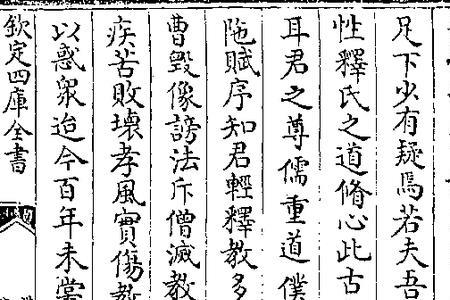 足下少有疑焉若夫吾
性釋氏之道脩心此古
耳君之尊儒重道僕
陁賦序知君輕釋教多
曹毀像謗法斥僧滅教
疾苦敗壞孝風實傷教
以惑衆迨今百年未嘗
欽定四庫全書